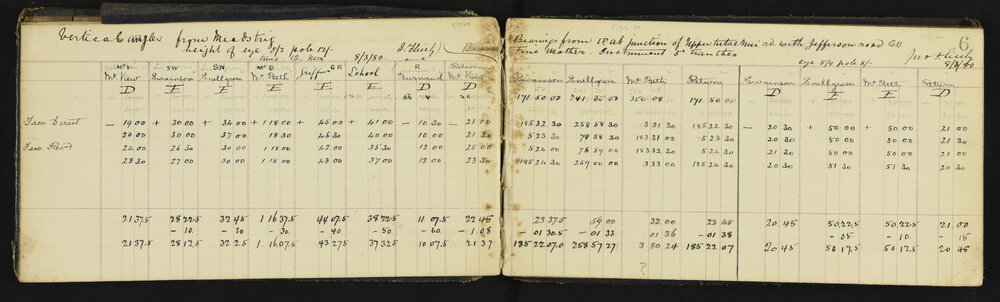 Vertical angles from Meadstrig
height of eye 5/2 pole 14/-
time 12. Noon 8/3/80
Mt V SW SW Mt B G R R Returned
Mt View Swainson Snellgrove Mt Peth Griffin School Burnand Mt View
D E E E E E D D
Face Direct — 19 00 + 30 00 + 34 00 + 1 18 00 + 45 00 + 41 00 — 10 30 — 21 00
20 00 30 00 37 00 18 30 46 30 40 00 10 00 20 30
24 00 26 30 30 00 1 15 00 42 00 35 30 12 00 25 00
23 30 27 00 30 00 1 15 00 43 00 37 00 12 00 23 30
21 37.5 28 22.5 32 45 1 16 37.5 44 07.5 38 22.5 11 07.5 22 45
- 10. - 20 - 30. - 40 - 50 - 60. - 1.08
21 37.5 28 12.5 32 25 1. 16 07.5 43 27.5 37 32.5 10 07.5 21 37
6
Bearings from 1P at junction of Upper road with Jefferson road
Fine Weather. Instrument
eye 5/4 pole 5/- 8/3/80
Swainson Snellgrove Mt Peth Return Swainson Snellgrove Mt Peth Return
D E E D
171 50.00 241 35 00 350 08. 171 50.00
185 32 30 258 58 30 3 31 30 185 22 30 — 20 30 + 50 00 + 50 00 — 21 00
5 23 30 78 58 30 183 31 00 5 23 30 20 30 50 00 50 00 21 00
5 24 00 78 59 00 183 32 30 5 24 30 21 30 50 30 50 00 21 30
185 24 30 259 00 00 3 33 00 185 24 30 20 30 51 30 51 30 20 30
23 37.5 59 00 32.00 23 45 20 45 50 22.5 50 22.5 21.00
- 01 30.5 - 01 33 01 36 - 01 38 - 05 - 10. - 15
185 22 07.0 258 57 27 3 30 24 185 22 07 20 45 50 17.5 50 12.5 20 45
?